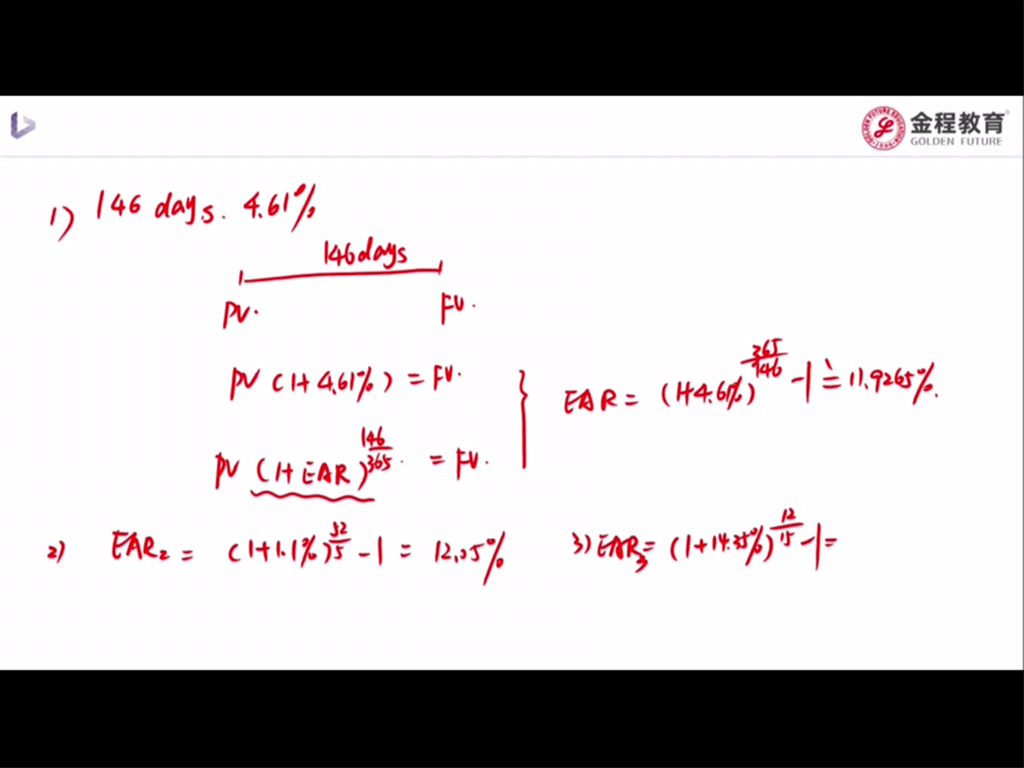 金程教育
GOLDEN FUTURE
1) 146 days. 4.61%
146days
PV. FV.
PV (1+4.61%) = FV.
EAR = (1+4.61%)^{365/146} -1 ≐ 11.9265%.
PV (1+EAR)^{146/365} = FV.
2) EAR₂ = (1+1.1%)^{52/5} -1 = 12.05%
3) EAR₃= (1+14.35%)^{12/15} -1=